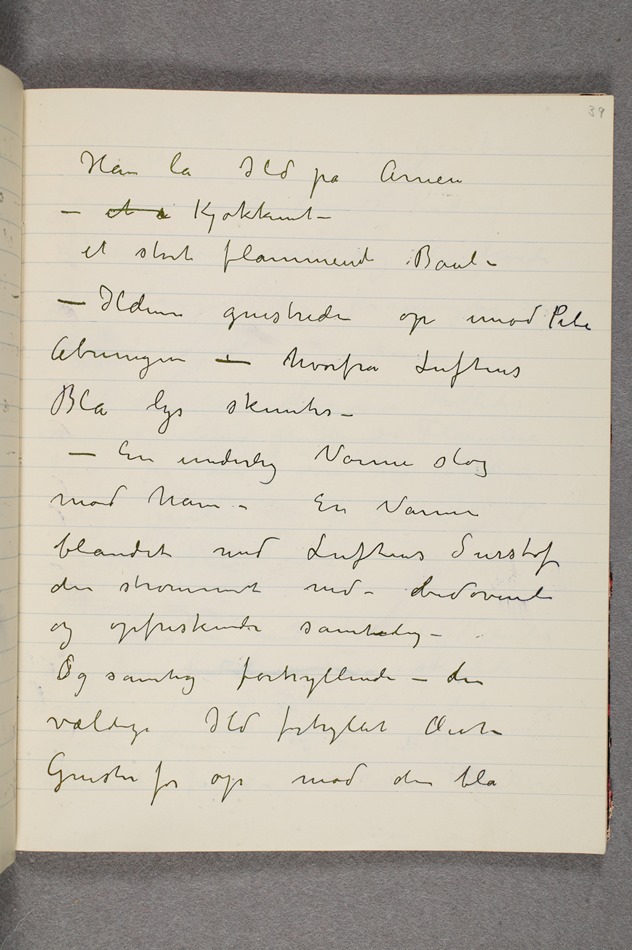 39
Han la Ild på Arnen
– et i Kjøkkent –
et stort flammende Baal –
– Ildene gnistrede op imod Pibe
Åbningen – hvorfra Luftens
Blå lys skimtes –
– En underlig Varme slog
mod ham – En Varme
blandet med Luftens Surstof
der strømmet ned – bedøvende
og opfriskende samtidig –
Og samtidig fortryllende – den
vældige Ild fortryllet
Gnister for op mod den blå